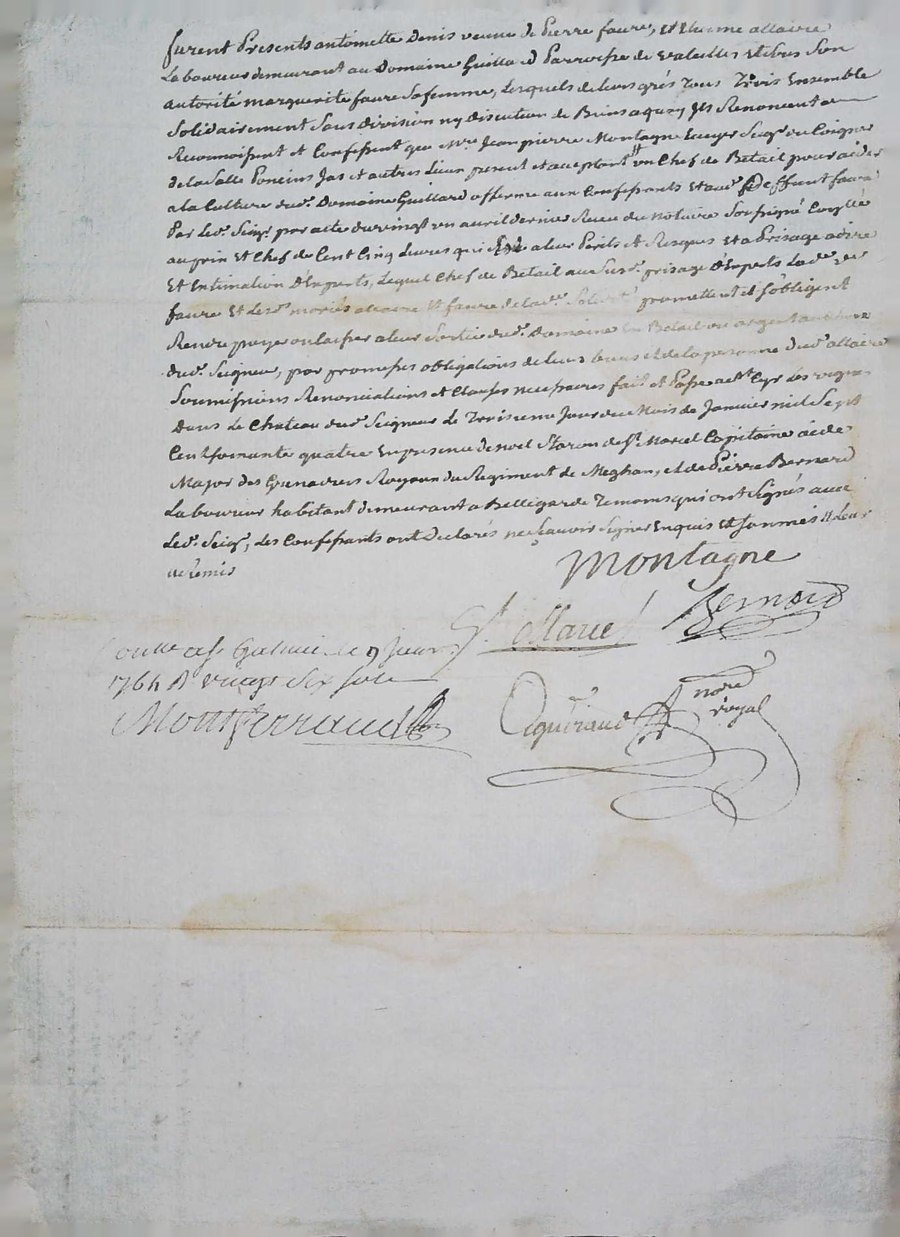 furent Presents antoinette Denis veuve de Pierre faure, et Etienne allaire
Laboureur demeurant au Domaine Guillard Parroisse de valeilles et de son
autorité marguerite faure sa femme, Lesquels de leurs grés tous trois Ensemble
Solidairement sans division ny discution de Biens aquoy Ils Renoncent
Reconnoissent et Confessent que Mre Jean pierre Montagne Ecuyer Seigr du Coignet
de la Salle Poncins Jas et autres Lieux present et acceptant un Chef de Betail pour aider
a la Culture dud. Domaine Guillard afferme aux Confessants et aud. deffunt faure
Par led. Seigr par acte du vingt un avril dernier Receu du notaire Soussigné
au prix et Chef de Cent Cinq Livres qui Est a leur Perils et Risques et a Prisage a dire
Et Estimation d'Experts, Lequel Chef de Betail au susd. prisage d'Experts Lad. ve
faure Et Lesd. mariés allaire et faure de lad. promettent et s'obligent
Rendre payer ou laisser a leur Sortie dud. Domaine En Betail ou argent au choix
dud. Seigneur, par promesses obligations de leurs biens et de la personne dud. allaire
Soumissions Renonciations et Clauses necessaires fait et Passé a St Cyr Les vignes
Dans le Chateau dud. Seigneur Le Troisieme Jour du Mois de Janvier mil Sept
Cent soixante quatre En presence de noel Staron de St Marcel Capitaine aide
Major des Grenadiers Royaux du Regiment de Meghan, et de Pierre Bernard
Laboureur habitant demeurant a Bellegarde Temoins qui ont Signés avec
Led. Seigr, Les Confessants ont Declarés ne sçavoir Signer Enquis et sommés
Montagne
St Marcel Bernard
Galmier le 9 Janv.
1764 R. vingt Six sols
Montferrand
nore
royal